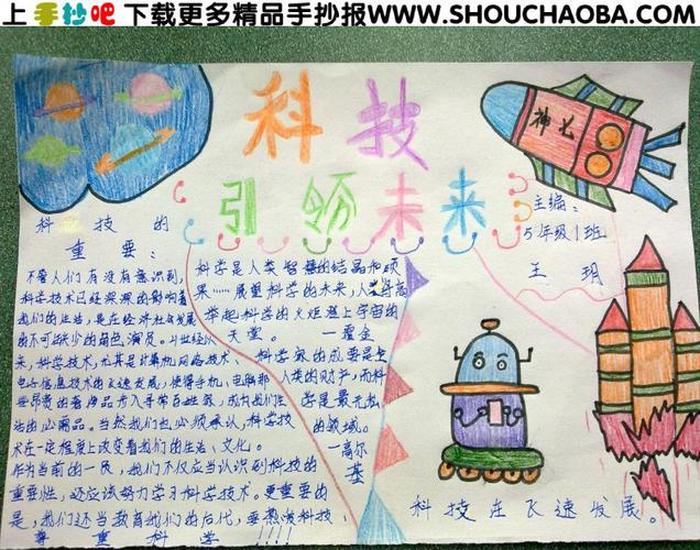 上 手抄吧 下载更多精品手抄报WWW.SHOUCHAOBA.COM
科技
引领未来
神七
主编:
5年级1班
王玥
科技的
重要:
不管人们有没有意识到,
科学技术已经深深的影响着
我们的生活,是在经济社会发展
的不可缺少的角色演员。
来,科学技术,尤其是计算机网络技术、
电子信息技术的飞速发展,使得手机、电脑那
些昂贵的奢侈品步入寻常百姓家,成为我们生
活的必需品。当然我们也必须承认,科学技
术在一定程度上改变着我们的生活、文化。
作为当前的一员,我们不仅应当认识到科技的
重要性,还应该努力学习科学技术。更重要的
是,我们还当教育我们的后代,要热爱科技、
尊重科学!!!!
科学是人类智慧的结晶和硕
果……展望科学的未来,人类将高
举起科学的火炬登上宇宙的
天堂。 —霍金
科学家的成要是全
人类的财产,而科
学是最无私
的领域。
—高尔
基
科技在飞速发展。